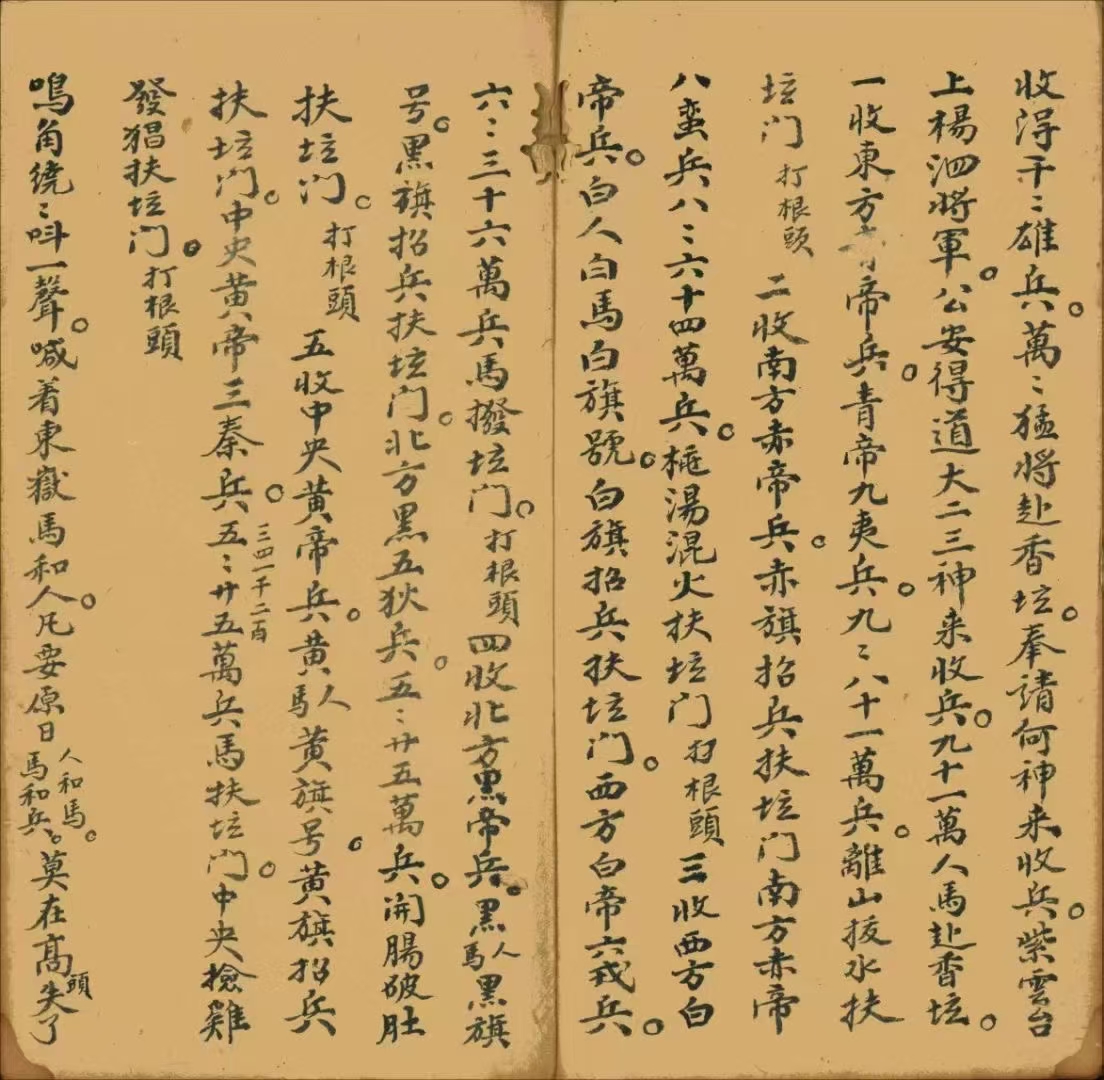 收得千〻雄兵。萬〻猛將赴香坛。奉請何神来收兵。紫雲台
上楊泗將軍。公安得道大二三神来收兵。九十一萬人馬赴香坛。
一收東方青帝兵。青帝九夷兵。九〻八十一萬兵。離山拔水扶
坛门 打根頭 二收南方赤帝兵。赤旗招兵扶坛门南方赤帝
八蛮兵八〻六十四萬兵。湯混火扶坛门 打根頭 三收西方白
帝兵。白人白馬白旗號。白旗招兵扶坛门。西方白帝六戎兵。
六〻三十六萬兵馬撥坛门。打根頭 四收北方黑帝兵。黑人馬黑旗
号。黑旗招兵扶坛门。北方黑五狄兵。五〻廿五萬兵。開腸破肚
扶坛门。打根頭 五收中央黄帝兵。黄人馬黄旗号。黄旗招兵
扶坛门。中央黄帝三秦兵。三四一千二百五〻廿五萬兵馬扶坛门。中央撿雞
發猖扶坛门。打根頭
鳴角繞〻呌一聲。喊着東嶽馬和人。凡要原日人和馬。馬和兵。莫在高頭失了